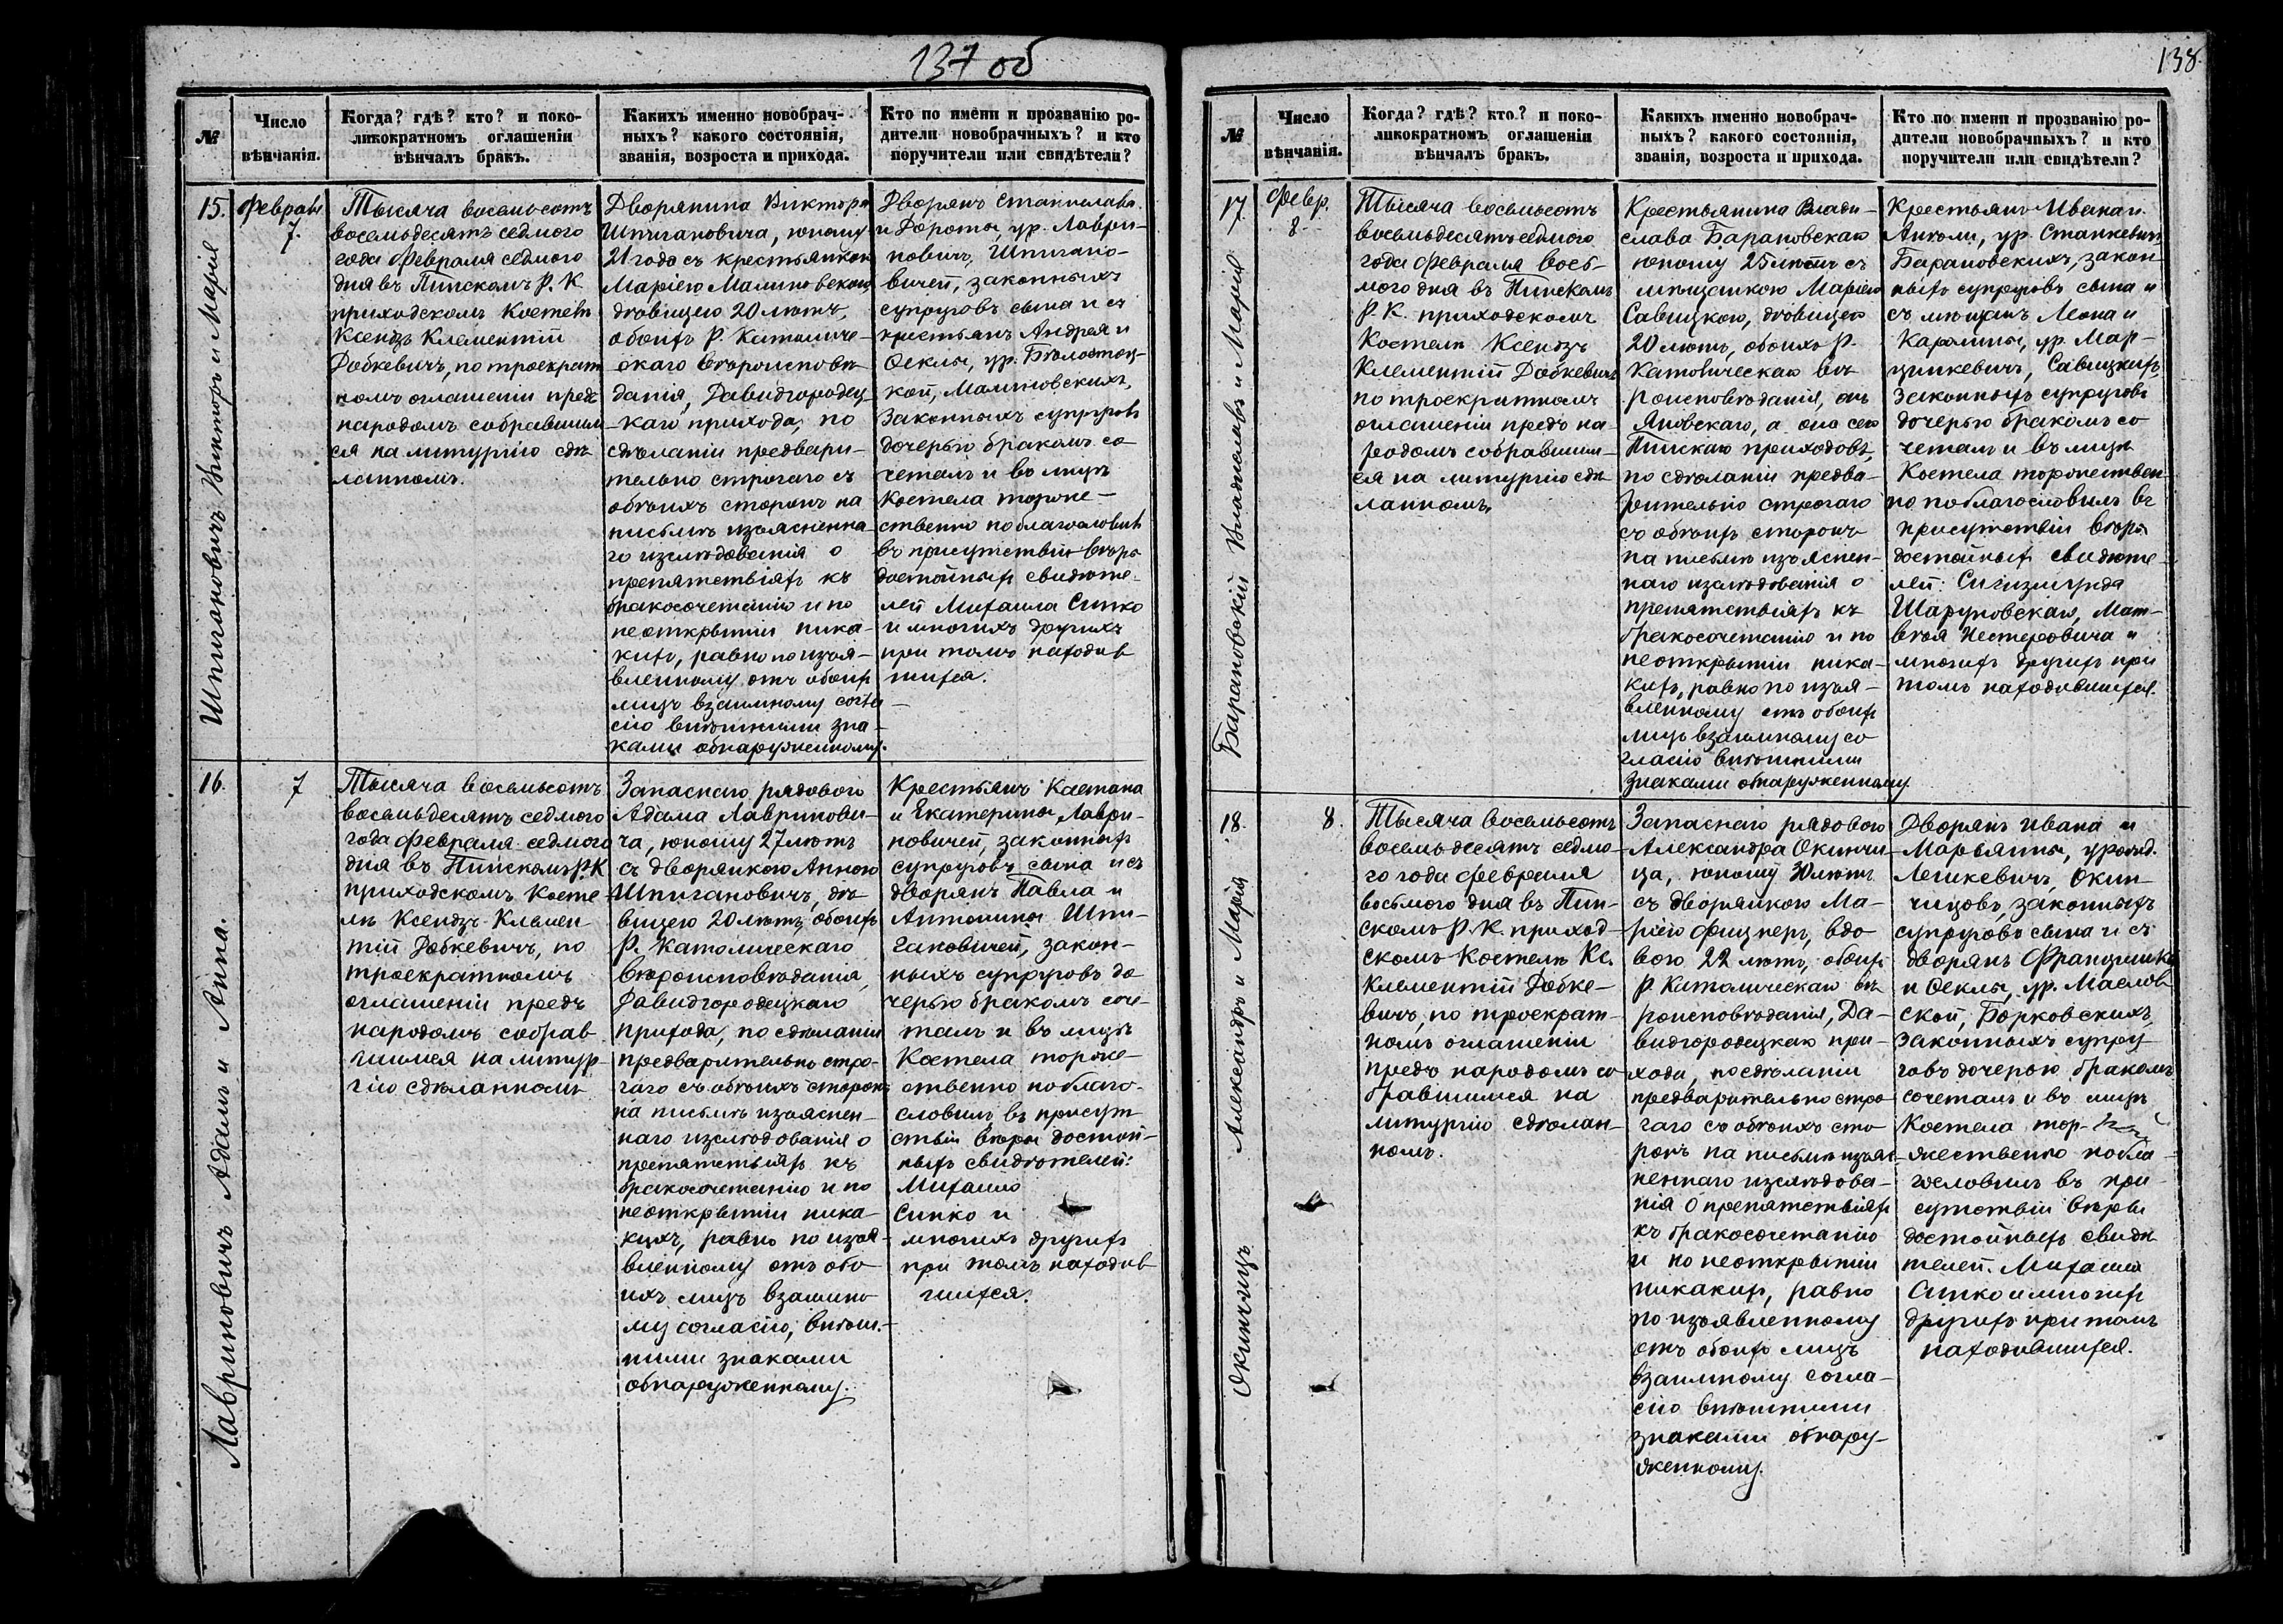 137 об
№
Число
вѣнчанія.
Когда? гдѣ? кто? и поко-
ликократномъ оглашеніи
вѣнчалъ бракъ.
Какихъ именно новобрач-
ныхъ? какого состоянія,
званія, возроста и прихода.
Кто по имени и прозванію ро-
дители новобрачныхъ? и кто
поручители или свидѣтели?
15.
Шпигановичъ Викторъ и Марія
Февраля
7.
Тысяча восемьсотъ
восемьдесятъ седмого
года Февраля седмого
дня въ Пинскомъ Р. К
приходскомъ Костелѣ
Ксендзъ Клементій
Добкевичъ, по троекрат
номъ оглашеніи предъ
народомъ собравшим
ся на литургію сдѣ
ланномъ.
Дворянина Виктора
Шпигановича, юношу
21 года съ крестьянкою
Маріею Малиновскою,
дѣвицею 20 лѣтъ,
обоихъ Р. Католиче-
скаго вѣроисповѣ-
данія, Давидгородец-
каго прихода, по
сдѣланіи предвари-
тельно строгаго съ
обѣихъ сторонъ на
письмѣ изъясненна-
го изслѣдованія о
препятствіяхъ къ
бракосочетанію и по
неоткрытіи ника-
кихъ, равно по изъя-
вленному отъ обоихъ
лицъ взаимному согла
сію внѣшними зна-
ками обнаруженному.
Дворянъ Станислава
и Дороты, ур. Лаври-
новичъ, Шпигано-
вичей, законныхъ
супруговъ сына и съ
крестьянъ Андрея и
Ѳеклы, ур. Бѣлоотоц-
кой, Малиновскихъ,
Законныхъ супруговъ
дочерью бракомъ со
четалъ и въ лицѣ
Костела торже-
ственно поблагословилъ
въ присутствіи вѣры
достойныхъ свидѣте-
лей Михаила Сипко
и многихъ другихъ
при томъ находив
шихся.
16.
Лавриновичъ Адамъ и Анна.
7
Тысяча восемьсотъ
восемьдесятъ седмого
года Февраля седмого
дня въ Пинскомъ Р. К
приходскомъ Косте-
лѣ Ксендзъ Клемен
тій Добкевичъ, по
троекратномъ
оглашеніи предъ
народомъ собрав
шимся на литур-
гію сдѣланномъ
Запаснаго рядового
Адама Лавринови-
ча, юношу 27 лѣтъ
съ дворянкою Анною
Шпигановичъ, дѣ
вицею 20 лѣтъ, обоихъ
Р. Католическаго
вѣроисповѣданія,
Давидгородецкаго
прихода, по сдѣланіи
предварительно стро-
гаго съ обѣихъ сторонъ
на письмѣ изъяснен-
наго изслѣдованія о
препятствіяхъ къ
бракосочетанію и по
неоткрытіи ника-
кихъ, равно по изъя-
вленному отъ обо
ихъ лицъ взаимно
му согласію, внѣш-
ними знаками
обнаруженному.
Крестьянъ Каетана
и Екатерины Лаври-
новичей, законныхъ
супруговъ сына и съ
дворянъ Павла и
Антонины Шпи-
гановичей, закон-
ныхъ супруговъ до
черью бракомъ соче-
талъ и въ лицѣ
Костела торже-
ственно поблаго-
словилъ въ присут
ствіи вѣры достой-
ныхъ свидѣтелей:
Михаила
Сипко и
многихъ другихъ
при томъ находив
шихся.
138.
№
Число
вѣнчанія.
Когда? гдѣ? кто? и поко-
ликократномъ оглашеніи
вѣнчалъ бракъ.
Какихъ именно новобрач-
ныхъ? какого состоянія,
званія, возроста и прихода.
Кто по имени и прозванію ро-
дители новобрачныхъ? и кто
поручители или свидѣтели?
17.
Барановскій Владиславъ и Марія
Февр.
8
Тысяча восемьсотъ
восемьдесятъ седмого
года Февраля вось-
мого дня въ Пинскомъ
Р. К. приходскомъ
Костелѣ Ксендзъ
Клементій Добкевичъ
по троекратномъ
оглашеніи предъ на-
родомъ собравшим-
ся на литургію сдѣ
ланномъ.
Крестьянина Влади-
слава Барановскаго
юношу 25 лѣтъ съ
мѣщанкою Маріею
Савицкою, дѣвицею
20 лѣтъ, обоихъ Р.
Католическаго вѣ
роисповѣданія, онъ
Яновскаго, а она сего
Пинскаго приходовъ,
по сдѣланіи предва-
рительно строгаго
съ обѣихъ сторонъ
на письмѣ изъяснен-
наго изслѣдованія о
препятствіяхъ къ
бракосочетанію и по
неоткрытіи ника-
кихъ, равно по изъя-
вленному отъ обоихъ
лицъ взаимному со
гласію внѣшними
знаками обнаруженному
Крестьянъ Ивана и
Анѣли, ур. Станкевичъ
Барановскихъ, закон
ныхъ супруговъ сына и
съ мѣщанъ Леона и
Каролины, ур. Мар-
цинкевичъ, Савицкихъ,
законныхъ супруговъ
дочерью бракомъ со
четалъ и въ лицѣ
Костела торжествен
но поблагословилъ въ
присутствіи вѣры
достойныхъ свидѣте-
лей: Сигизмунда
Шаруновскаго, Мат-
вѣя Нестеровича и
многихъ другихъ при
томъ находившихся.
18.
Окинчицъ Александръ и Марія
8.
Тысяча восемьсотъ
восемьдесятъ седмо-
го года Февраля
восьмого дня въ Пин-
скомъ Р. К. приход-
скомъ Костелѣ Кс.
Клементій Добке-
вичъ, по троекрат-
номъ оглашеніи
предъ народомъ со
бравшимся на
литургію сдѣлан-
номъ.
Запаснаго рядового
Александра Окинчи-
ца, юношу 30 лѣтъ
съ дворянкою Ма-
ріею Фицнеръ, вдо
вою 22 лѣтъ, обоихъ
Р. Католическаго вѣ
роисповѣданія, Да-
видгородецкаго при-
хода, по сдѣланіи
предварительно стро
гаго съ обѣихъ сто
ронъ на письмѣ изъяс
неннаго изслѣдова-
нія о препятствіяхъ
къ бракосочетанію
и по неоткрытіи
никакихъ, равно
по изъявленному
отъ обоихъ лицъ
взаимному согла-
сію внѣшними
знаками обнару-
женному.
Дворянъ Ивана и
Марьянны, урожд.
Лешкевичъ, Окин
чицовъ, законныхъ
супруговъ сына и съ
дворянъ Францишка
и Ѳеклы, ур. Маслов
ской, Борковскихъ,
законныхъ супру
говъ дочерью бракомъ
сочеталъ и въ лицѣ
Костела тор-
жественно побла
гословилъ въ при-
сутствіи вѣры
достойныхъ свидѣ
телей. Михаила
Сипко и многихъ
другихъ при томъ
находившихся.